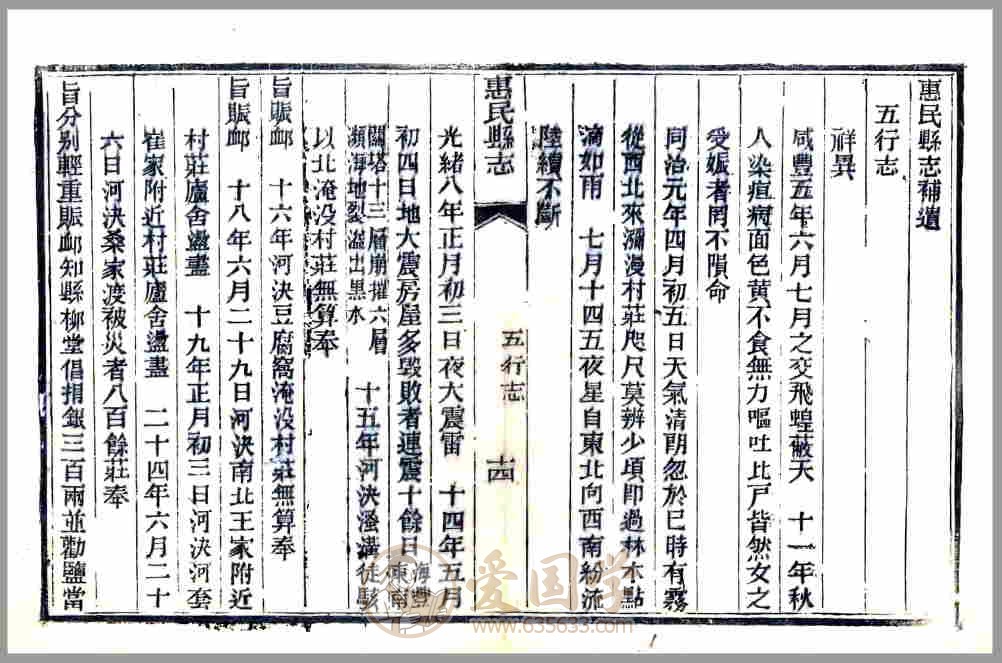 惠民縣志補遺
五行志
祥異
咸豐五年六月七月之交飛蝗蔽天　十一年秋
人染疸病面色黃不食無力嘔吐比戸皆然女之
受娠者罔不隕命
同治元年四月初五日天氣清朗忽於巳時有霧
從西北來瀰漫村莊咫尺莫辨少頃即過林木點
滴如雨　七月十四五夜星自東北向西南紛流
陸續不斷
惠民縣志
五行志
十四
光緒八年正月初三日夜大震雷　十四年五月
初四日地大震房屋多毀敗者連震十餘日海豐東南
關塔十三層崩摧六層
瀕海地裂溢出黑水
十五年河決溞溝徒駭
以北淹没村莊無算奉
旨賑邮　十六年河決豆腐窩淹没村莊無算奉
旨賑邮　十八年六月二十九日河決南北王家附近
村莊廬舍盪盡　十九年正月初三日河決河套
崔家附近村莊廬舍盪盡　二十四年六月二十
六日河決桑家渡被災者八百餘莊奉
旨分别輕重賑邮知縣柳堂倡捐銀三百兩並勸鹽當
爱国学
www.635633.com